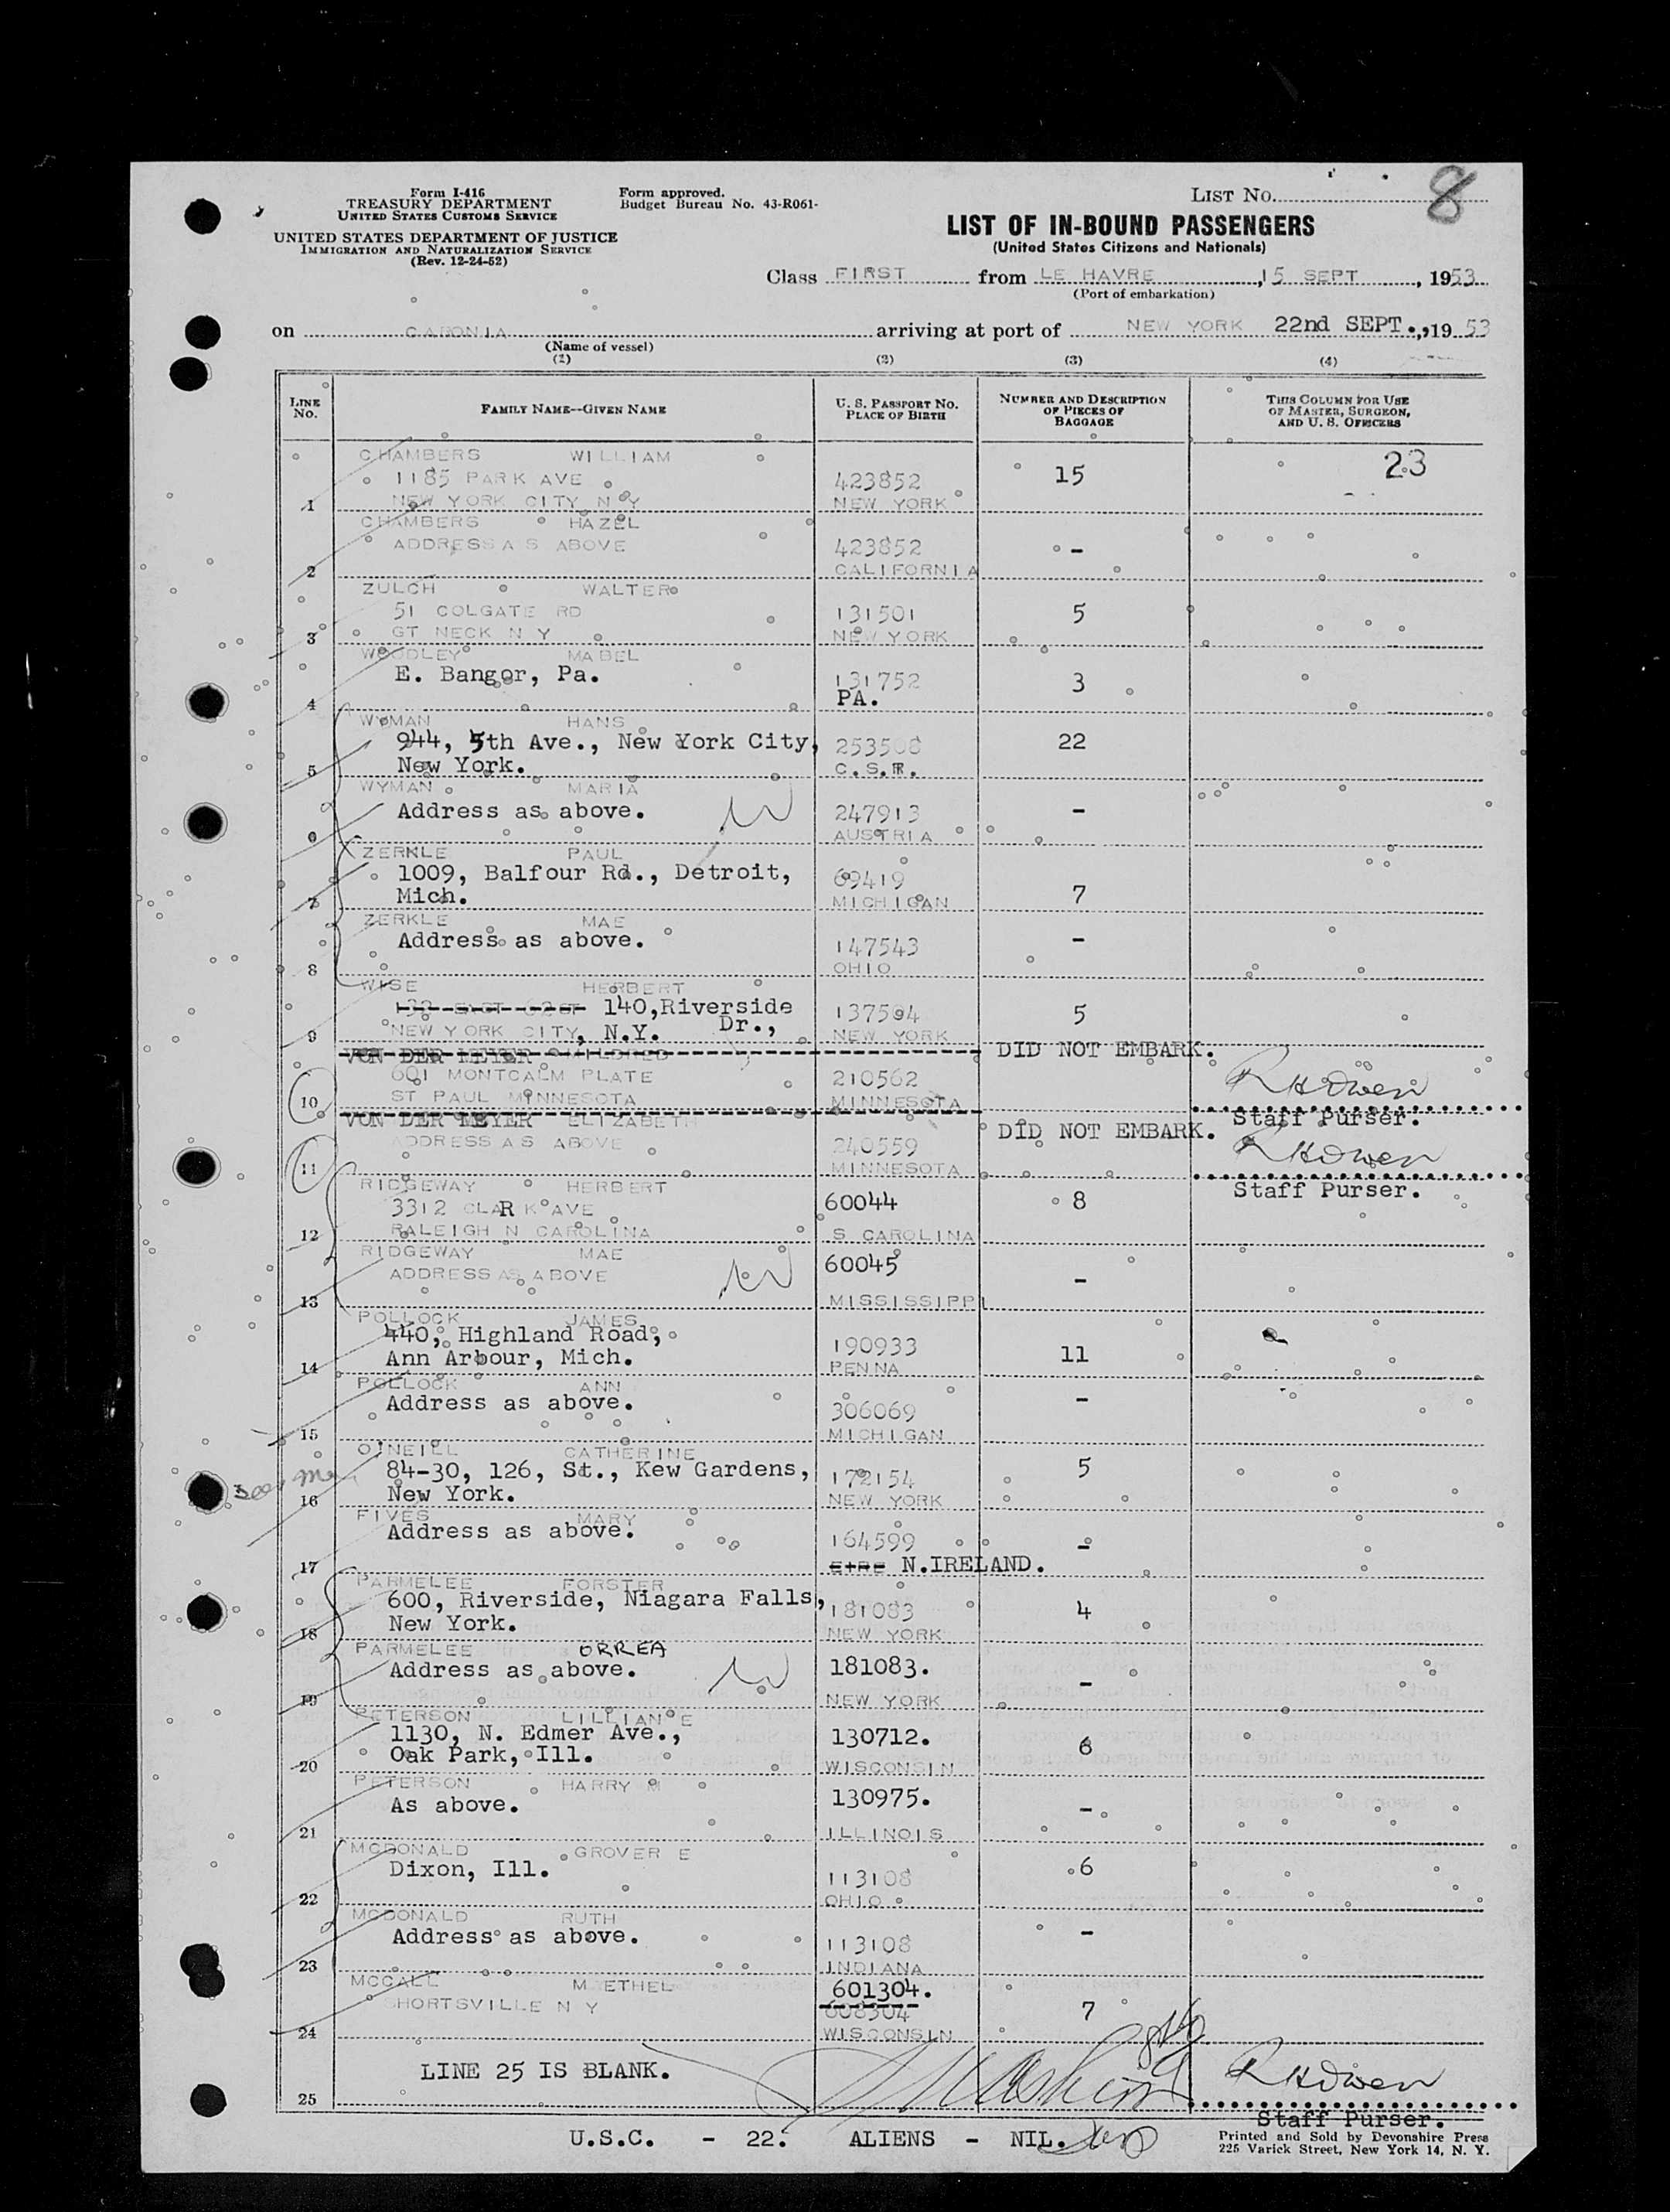 Form I-416
TREASURY DEPARTMENT
UNITED STATES CUSTOMS SERVICE
UNITED STATES DEPARTMENT OF JUSTICE
IMMIGRATION AND NATURALIZATION SERVICE
(Rev. 12-24-52)
Form approved.
Budget Bureau No. 43-R061-
LIST No. 8
LIST OF IN-BOUND PASSENGERS
(United States Citizens and Nationals)
Class FIRST from LE HAVRE, 15 SEPT, 1953
(Port of embarkation)
on CARONIA arriving at port of NEW YORK 22nd SEPT., 1953
(Name of vessel)
(1) (2) (3) (4)
LINE No.
FAMILY NAME--GIVEN NAME
U. S. PASSPORT No.
PLACE OF BIRTH
NUMBER AND DESCRIPTION
OF PIECES OF
BAGGAGE
THIS COLUMN FOR USE
OF MASTER, SURGEON,
AND U. S. OFFICERS
CHAMBERS WILLIAM 23
1185 PARK AVE 423852 15
1 NEW YORK CITY N Y NEW YORK
CHAMBERS HAZEL
ADDRESS AS ABOVE 423852 -
2 CALIFORNIA
ZULCH WALTER
51 COLGATE RD 131501 5
3 GT NECK N Y NEW YORK
WOODLEY MABEL
E. Bangor, Pa. 131752 3
4 PA.
WYMAN HANS
944, 5th Ave., New York City, 253508 22
5 New York. C.S.R.
WYMAN MARIA
Address as above. 247913 -
6 AUSTRIA
ZERKLE PAUL
1009, Balfour Rd., Detroit, 69419
7 Mich. MICHIGAN 7
ZERKLE MAE
Address as above. 147543 -
8 OHIO
WISE HERBERT
140, Riverside 137594 5
9 NEW YORK CITY, N.Y. Dr., NEW YORK
VON DER MEYER MILDRED DID NOT EMBARK.
601 MONTCALM PLATE 210562 R H Owen
10 ST PAUL MINNESOTA MINNESOTA
Staff Purser.
VON DER MEYER ELIZABETH DID NOT EMBARK.
ADDRESS AS ABOVE 240559 R H Owen
11 MINNESOTA
Staff Purser.
RIDGEWAY HERBERT
3312 CLARK AVE 60044 8
12 RALEIGH N CAROLINA S CAROLINA
RIDGEWAY MAE 60045
ADDRESS AS ABOVE -
13 MISSISSIPPI
POLLOCK JAMES
440, Highland Road, 190933 11
14 Ann Arbour, Mich. PENNA
POLLOCK ANN
Address as above. 306069 -
15 MICHIGAN
O'NEILL CATHERINE
84-30, 126, St., Kew Gardens, 172154 5
16 New York. NEW YORK
FIVES MARY
Address as above. 164599 -
17 EIRE N.IRELAND.
PARMELEE FORSTER
600, Riverside, Niagara Falls, 181083 4
18 New York. NEW YORK
PARMELEE ORREA
Address as above. 181083. -
19 NEW YORK
PETERSON LILLIAN E
1130, N. Edmer Ave., 130712. 6
20 Oak Park, Ill. WISCONSIN
PETERSON HARRY M
As above. 130975. -
21 ILLINOIS
MCDONALD GROVER E
Dixon, Ill. 113108 6
22 OHIO
MCDONALD RUTH
Address as above. 113108 -
23 INDIANA
MCCALL M ETHEL 601304.
SHORTSVILLE N Y 608304 7
24 WISCONSIN
LINE 25 IS BLANK. R H Owen
25
Staff Purser.
U.S.C. - 22. ALIENS - NIL.
Printed and Sold by Devonshire Press
225 Varick Street, New York 14, N. Y.